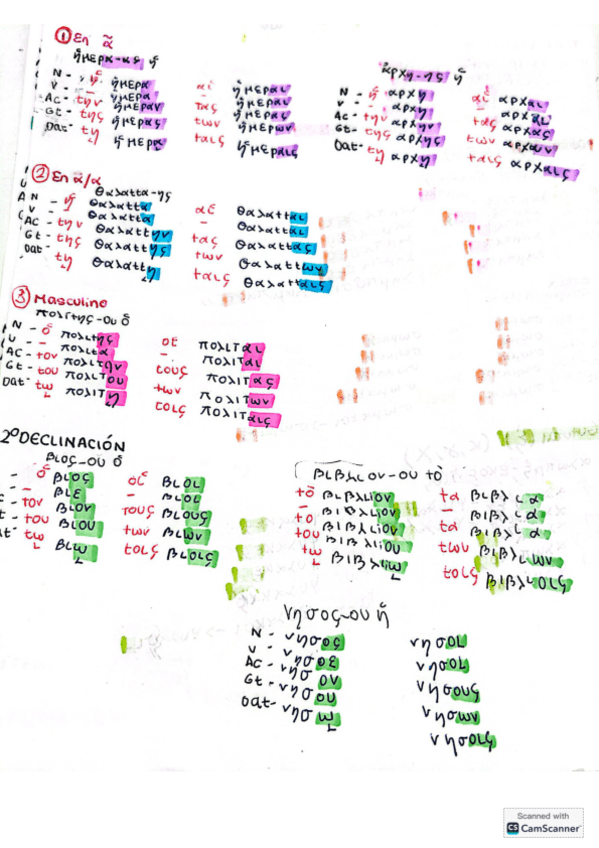 ① En ᾶ
ἡμερα-ας ἡ
N - ἡ ἡμερα αἱ ἡμεραι
V - - ἡμερα - ἡμεραι
Ac - την ἡμεραν τας ἡμερας
Gt - της ἡμερας των ἡμερων
Dat - τῃ ἡμερᾳ ταις ἡμεραις
ἀρχη-ης ἡ
N - ἡ αρχη αἱ αρχαι
V - - αρχη - αρχαι
Ac - την αρχην τας αρχας
Gt - της αρχης των αρχων
Dat - τῃ αρχῃ ταις αρχαις
② En α/α
θαλαττα-ης
N - ἡ θαλαττα αἱ θαλατται
V - - θαλαττα - θαλατται
AC - την θαλατταν τας θαλαττας
Gt - της θαλαττης των θαλαττων
Dat τῃ θαλαττῃ ταις θαλατταις
③ Masculino
πολιτης-ου ὁ
N - ὁ πολιτης οἱ πολιται
V - - πολιτα - πολιται
AC - τον πολιτην τους πολιτας
Gt - του πολιτου των πολιτων
Dat - τῳ πολιτῃ τοις πολιταις
2º DECLINACIÓN
βιος-ου ὁ
- ὁ βιος οἱ βιοι
- - βιε - βιοι
- τον βιον τους βιους
- του βιου των βιων
τῳ βιῳ τοις βιοις
βιβλιον-ου τὸ
τὸ βιβλιον τα βιβλια
- βιβλιον - βιβλια
τὸ βιβλιον τα βιβλια
του βιβλιου των βιβλιων
τῳ βιβλιῳ τοις βιβλιοις
νησος-ου ἡ
N - νησος νησοι
V - νησοε νησοι
AC - νησον νησους
Gt - νησου νησων
Dat - νησῳ νησοις
Scanned with
CS CamScanner